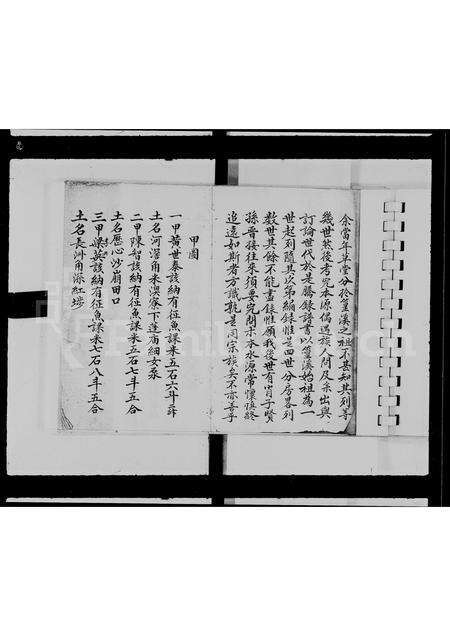 余當年草堂分於篁溪之祖不甚知其列等
幾世然後考究本原偶遇族人問及系出與
訂論世代於是騰錄譜書以篁溪始祖為一
世起列隨其次第編錄惟是四世分房畧列
數世其餘不能盡錄惟願我後世有肖子賢
孫晉接往來須要究問宗本水源常懷慎終
追遠如斯者方識親是同宗族矣不亦善乎
甲圖
一甲黃世泰該納有征魚課米五石六斗三
土名河滘角禾深寮下蓬庙細女
二甲陳智該納有征魚課米五石七斗五
土名𢙺心沙崩田口
三甲梁英該納有征魚課米七石八斗五合
土名長洲角深紅